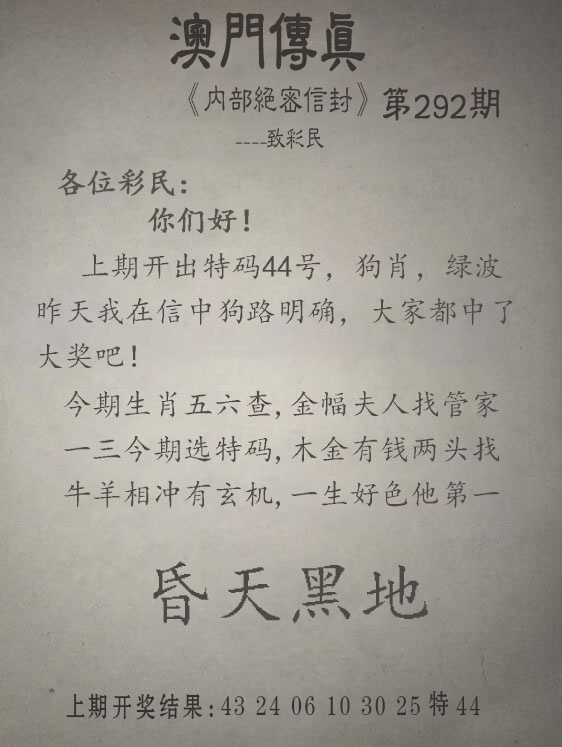 澳門傳眞
《内部絕密信封》第292期
----致彩民
各位彩民：
你们好！
上期开出特码44号，狗肖，绿波
昨天我在信中狗路明确，大家都中了
大奖吧！
今期生肖五六查,金幅夫人找管家
一三今期选特码,木金有钱两头找
牛羊相冲有玄机,一生好色他第一
昏天黑地
上期开奖结果:43 24 06 10 30 25 特 44